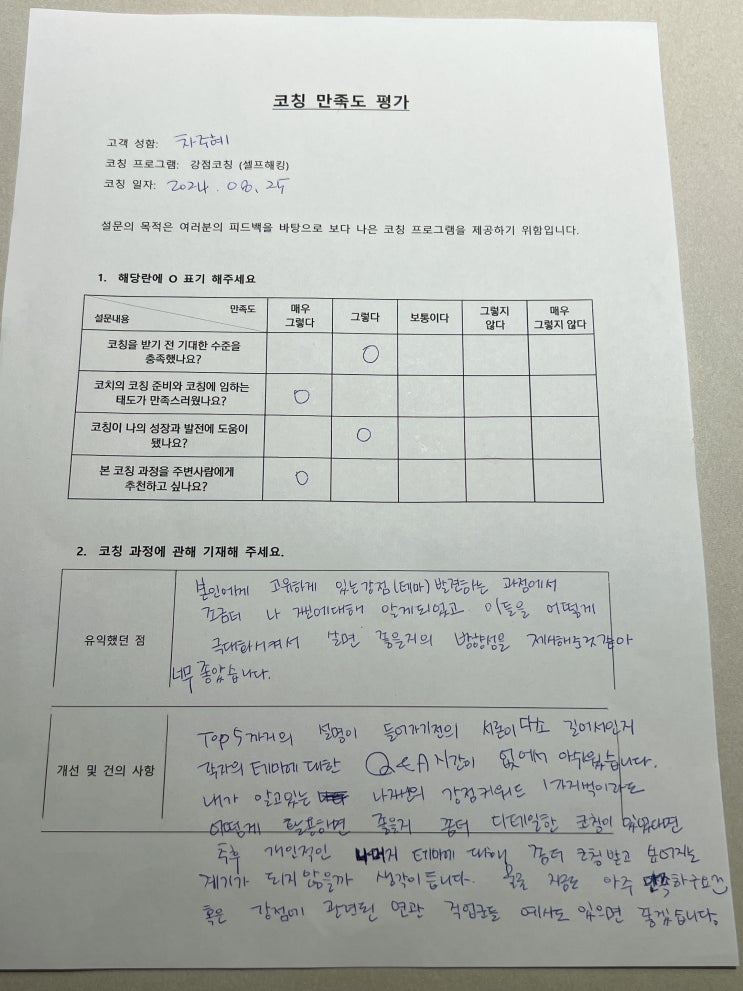 코칭 만족도 평가
고객 성함: 차주혜
코칭 프로그램: 강점코칭 (셀프해킹)
코칭 일자: 2024. 08. 25
설문의 목적은 여러분의 피드백을 바탕으로 보다 나은 코칭 프로그램을 제공하기 위함입니다.
1. 해당란에 O 표기 해주세요
만족도
설문내용
매우 그렇다
그렇다
보통이다
그렇지 않다
매우 그렇지 않다
코칭을 받기 전 기대한 수준을
충족했나요?
O
코치의 코칭 준비와 코칭에 임하는
태도가 만족스러웠나요?
O
코칭이 나의 성장과 발전에 도움이
됐나요?
O
본 코칭 과정을 주변사람에게
추천하고 싶나요?
O
2. 코칭 과정에 관해 기재해 주세요.
유익했던 점
본인에게 고유하게 있는 강점(테마) 발견하는 과정에서
조금더 나 에대해 알게되었고 이들을 어떻게
극대화시켜서 살면 좋을지의 방향성을 제시해준것같아
너무 좋았습니다.
개선 및 건의 사항
Top 5까지의 설명이 들어가기전의 서론이 다소 길어서인지
각자의 테마에 대한 Q&A 시간이 없어서 아쉬웠습니다.
내가 알고있는 나만의 강점키워드 1가지씩이라도
어떻게 활용하면 좋을지 좀더 디테일한 코칭이 있었다면
추후 개인적인 나머지 테마에 대해 좀더 코칭받고 싶어지는
계기가 되지 않을까 생각이 듭니다. 지금은 아주 만족하구요
혹은 강점에 관련된 연관 직업군들 예시도 있으면 좋겠습니다.